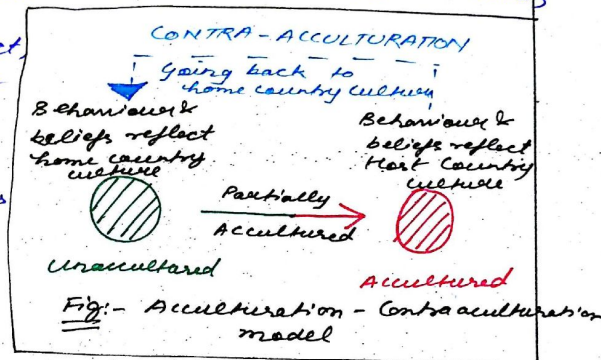 CONTRA-ACCULTURATION
Going back to
home country culture
Behaviour &
beliefs reflect
home country
culture
Behaviour &
beliefs reflect
Host Country
culture
Partially
Accultured
Unaccultured
Accultured
Fig:- Acculturation - Contraaculturation
model